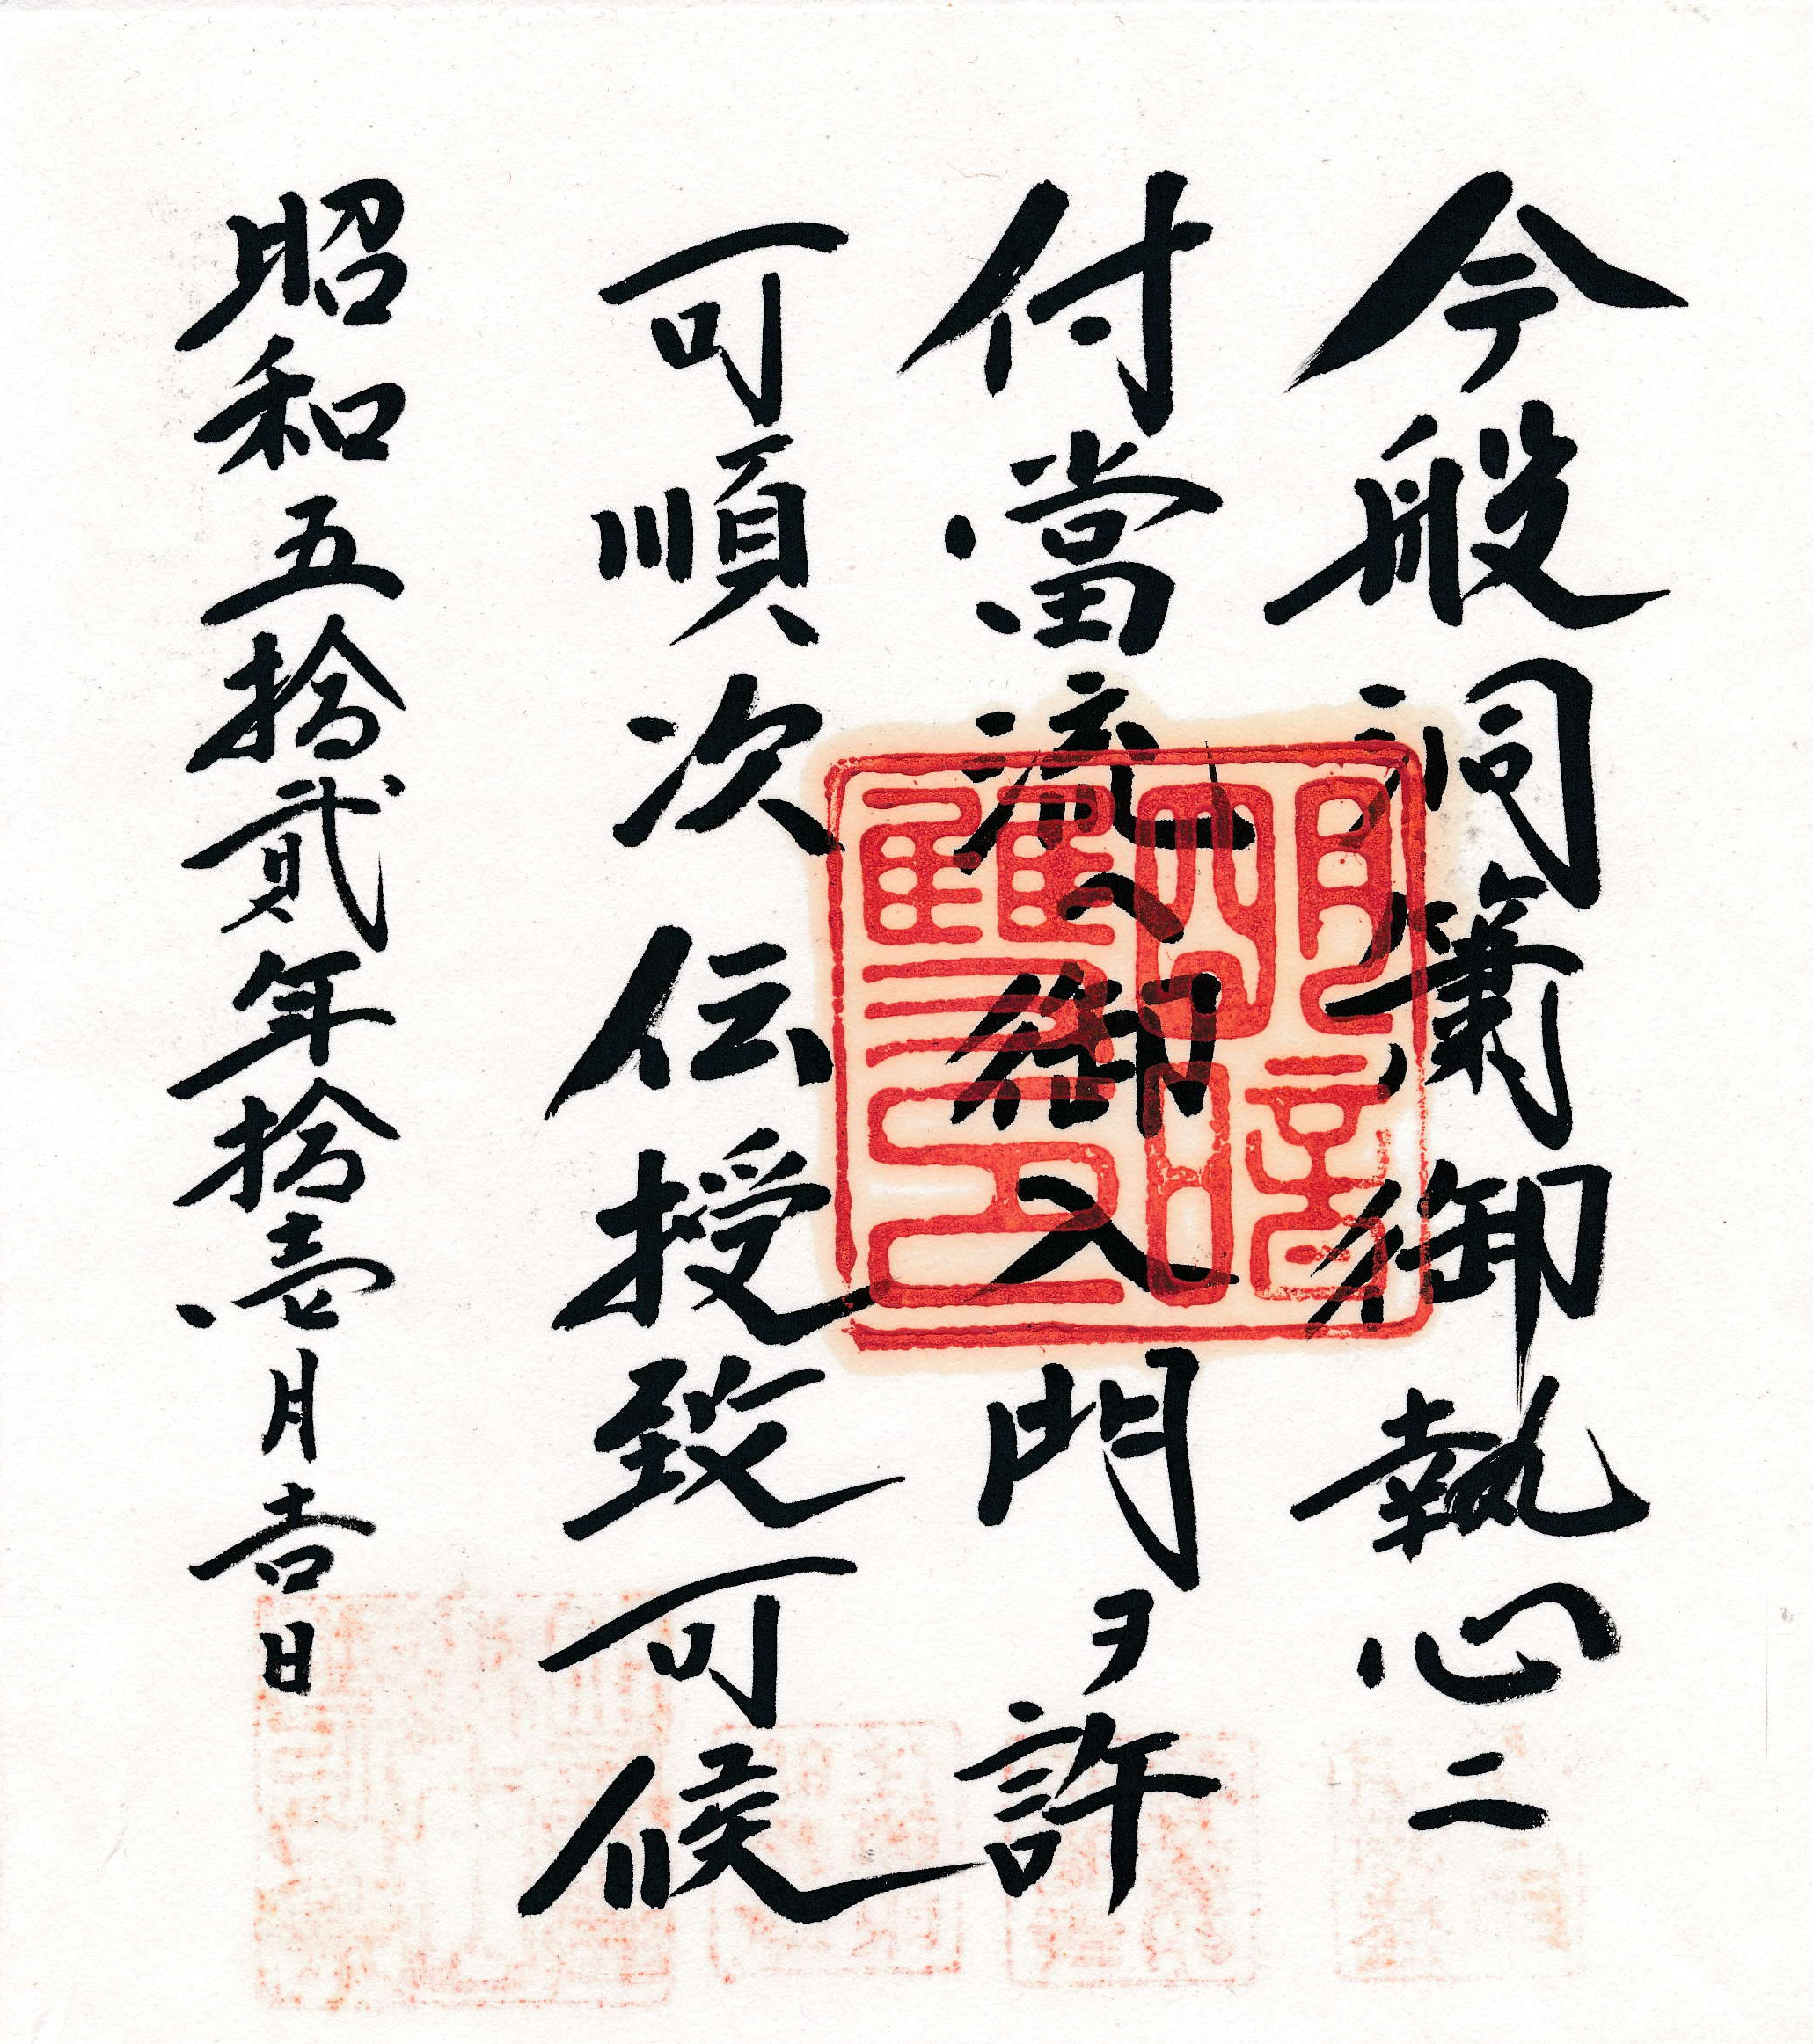 今般洞簫御執心ニ
付當流へ御入門ヲ許
可順次伝授致可候
昭和五拾貳年拾壱月吉日